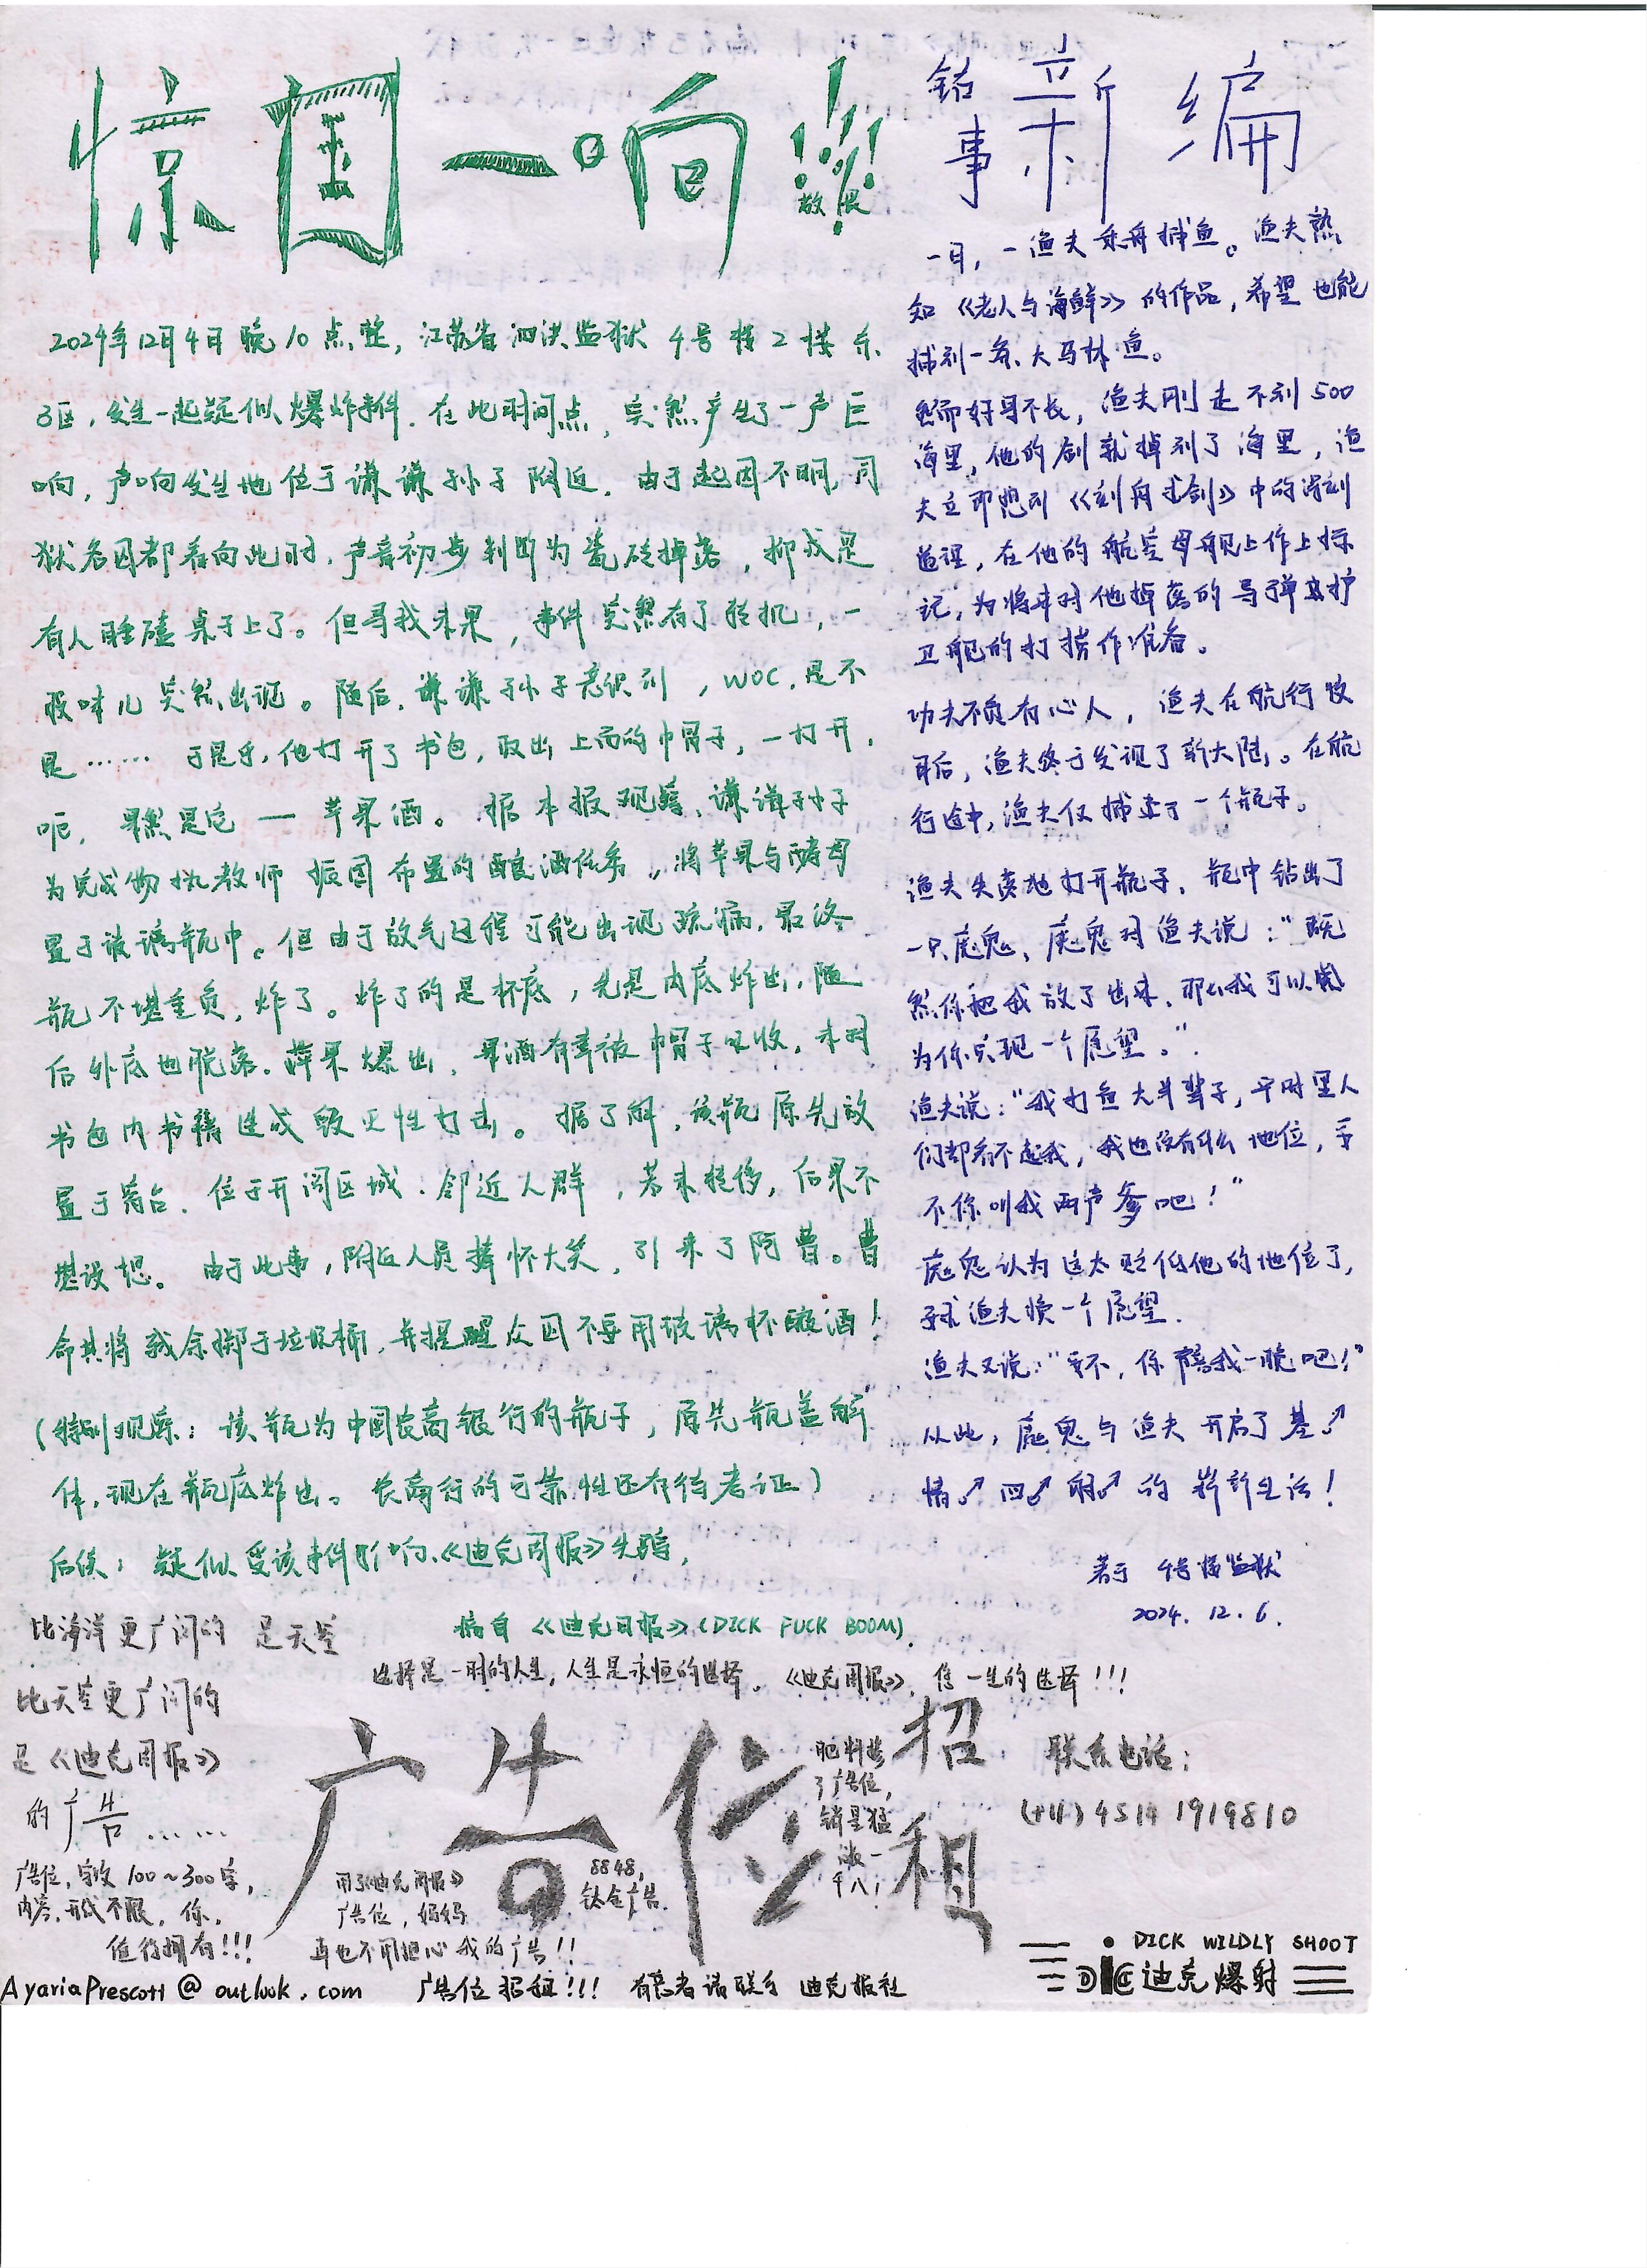 惊国一·响!!!
敬畏
2024年12月4日晚10点整，江苏省泗洪监狱4号楼2楼东
3区，发生一起疑似爆炸事件．在此时间点，突然产生了一声巨
响，声响发生地位于谦谦孙子附近．由于起因不明，同
狱各囚都看向此时．声音初步判断为瓷砖掉落，抑或是
有人睡磕桌子上了。但寻找未果，事件突然有了转机，一
股味儿突然出现。随后，谦谦孙子意识到，WOC，是不
是……于是乎，他打开了书包，取出上面的巾帽子，一打开，
呃，果然是它——苹果酒。据本报观察，谦谦孙子
为完成物执教师 振国布置的酿酒任务，将苹果与酵母
置于玻璃瓶中。但由于放气过程可能出现疏漏，最终
瓶不堪重负，炸了。炸了的是杯底，先是内底炸出，随
后外底也脱落。苹果爆出，果酒有幸被巾帽子吸收，未对
书包内书籍造成毁灭性打击。据了解，该瓶原先放
置于窗台．位于开阔区域．邻近人群，若未转移，后果不
堪设想。由于此事，附近人员捧怀大笑，引来了阿曹。曹
命其将残余掷于垃圾桶，并提醒众囚不要用玻璃杯酿酒！
(特别观察：该瓶为中国农商银行的瓶子，原先瓶盖解
体，现在瓶底炸出。农商行的可靠性还有待考证)
后续：疑似受该事件影响，《迪克周报》失踪，
摘自《迪克日报》(DICK FUCK BOOM).
故事新编
一日，一渔夫乘舟捕鱼。渔夫熟
知《老人与海鲜》的作品，希望也能
捕到一条大马林鱼。
然而好景不长，渔夫刚走不到500
海里，他的剑就掉到了海里，渔
夫立即想到《刻舟求剑》中的深刻
道理，在他的航空母舰上作上标
记，为将来对他掉落的导弹及护
卫舰的打捞作准备。
功夫不负有心人，渔夫在航行数
月后，渔夫终于发现了新大陆。在航
行途中，渔夫仅捕到了一个瓶子。
渔夫失落地打开瓶子，瓶中钻出了
一只魔鬼，魔鬼对渔夫说："既
然你把我放了出来，那么我可以
为你实现一个愿望。"
渔夫说："我打鱼大半辈子，平时里人
们都看不起我，我也没有什么地位，要
不你叫我两声爹吧！"
魔鬼认为这太贬低他的地位了，
要求渔夫换一个愿望．
渔夫又说："要不，你陪我一晚吧！"
从此，魔鬼与渔夫开启了基♂
情♂四♂射♂的崭新生活！
著于 4号楼监狱
2024.12.6.
比海洋更广阔的 是天空
比天空更广阔的
是《迪克周报》
的广告……
选择是一时的人生，人生是永恒的选择。《迪克周报》，您一生的选择！！！
广告位招租
肥料掺
了广告位，
销量猛
涨一
千八！
联系电话：
(+11) 4514 1919810
广告位，字数100~300字，
内容，形式不限，你，
值得拥有!!!
用了《迪克周报》
广告位，妈妈
再也不用担心我的广告！！
8848，
钛金广告．
AyariaPrescott@outlook.com
广告位招租!!! 有意者请联系 迪克报社
DICK WILDLY SHOOT
DIC 迪克爆射